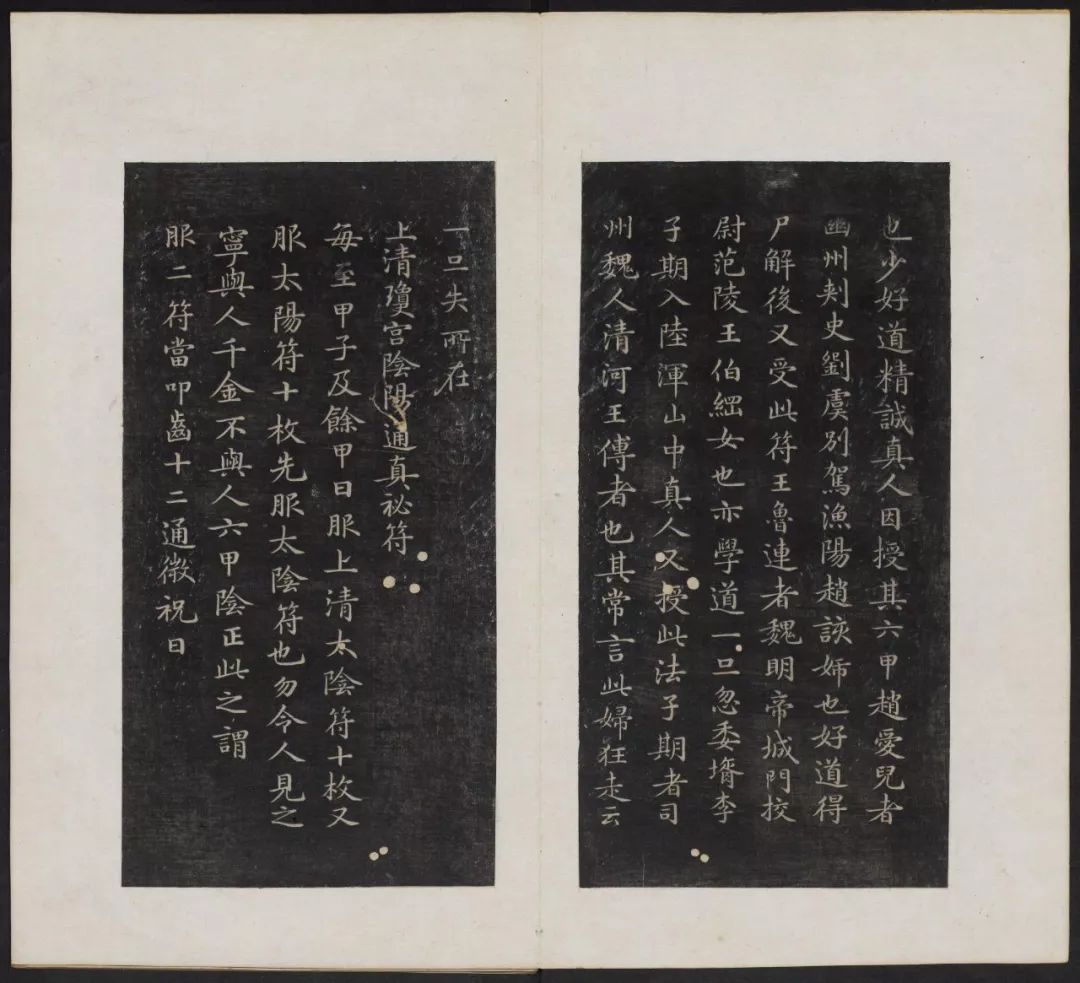 也少好道精誠真人因授其六甲趙愛兒者
幽州刾史劉虞別駕漁陽趙該姊也好道得
尸解後又受此符王魯連者魏明帝城門挍
尉范陵王伯綱女也亦學道一旦忽委壻李
子期入陸渾山中真人又授此法子期者司
州魏人清河王傅者也其常言此婦狂走云
一旦失所在
上清瓊宮陰陽通真祕符
每至甲子及餘甲日服上清太陰符十枚又
服太陽符十枚先服太陰符也勿令人見之
寧與人千金不與人六甲陰正此之謂
服二符當叩齒十二通微祝曰